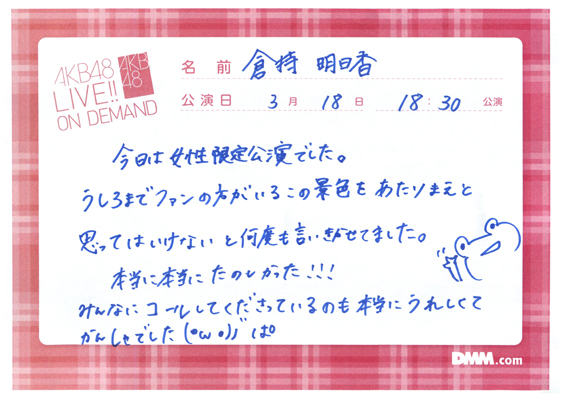 AKB48
LIVE!!
ON DEMAND
AKB
48
名前 倉持 明日香
公演日 3月 18日 18:30 公演
今日は女性限定公演でした。
うしろまでファンの方がいるこの景色をあたりまえと
思ってはいけないと何度も言いきかせてました。
本当に本当にたのしかった!!!
みんなにコールしてくださっているのも本当にうれしくて
かんしゃでした(°ω°)ﾞぱ
DMM.com